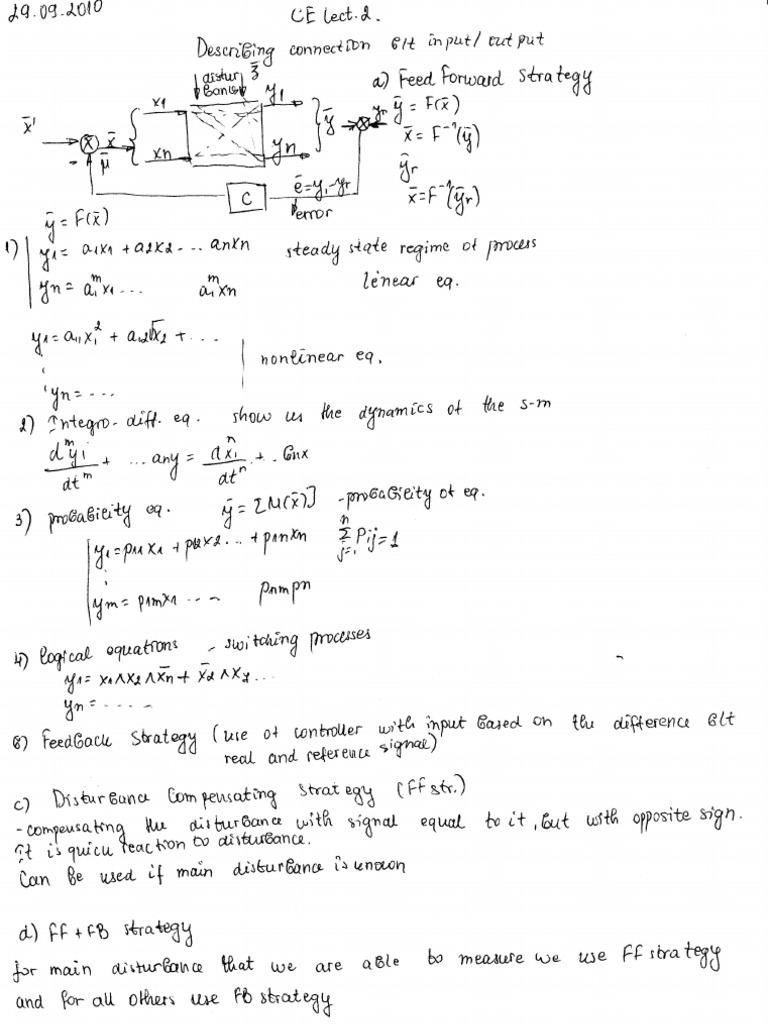 29.09.2010
CE lect. 2.
Describing connection b/t input/output
distur bance ξ̄
a) Feed forward strategy
x̄' x̄ x1 y1 ȳ yr
ȳ = F(x̄)
x̄ = F⁻¹(ȳ)
- μ̄ xn yn
ȳr
C ē = y1-yr
x̄ = F⁻¹(ȳr)
error
ȳ = F(x̄)
1) y1 = a1x1 + a2x2 - ... anxn steady state regime of process
yn = a1^m x1 ... a1^m xn linear eq.
y1 = a11x1² + a12√x2 + ...
nonlinear eq.
yn = ...
2) Integro-diff. eq. show us the dynamics of the s-m
d^m yi/dt^m + ... any = d^n xi/dt^n + .. bnx
3) probability eq. ȳ = [M(x̄)] - probability of eq.
y1 = p11x1 + p12x2 ... + p1nxn Σ(j=1..n) Pij = 1
ym = p1mx1 .... pnmpn
4) logical equations - switching processes
y1 = x1∧x2∧x̄n + x̄2∧x7...
yn = .....
b) Feedback strategy (use of controller with input based on the difference b/t
real and reference signal)
c) Disturbance Compensating strategy (FF str.)
- compensating the disturbance with signal equal to it, but with opposite sign.
it is quick reaction to disturbance.
Can be used if main disturbance is known
d) FF + FB strategy
for main disturbance that we are able to measure we use FF strategy
and for all others use FB strategy